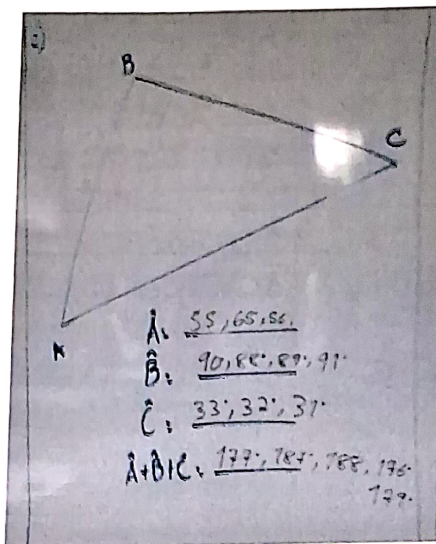 a)
B
C
A
Â: 55, 65, 56.
B̂: 90, 88°, 89°, 91°
Ĉ: 33°, 32°, 31°
Â+B̂+Ĉ: 177°, 187°, 188, 176°
179°